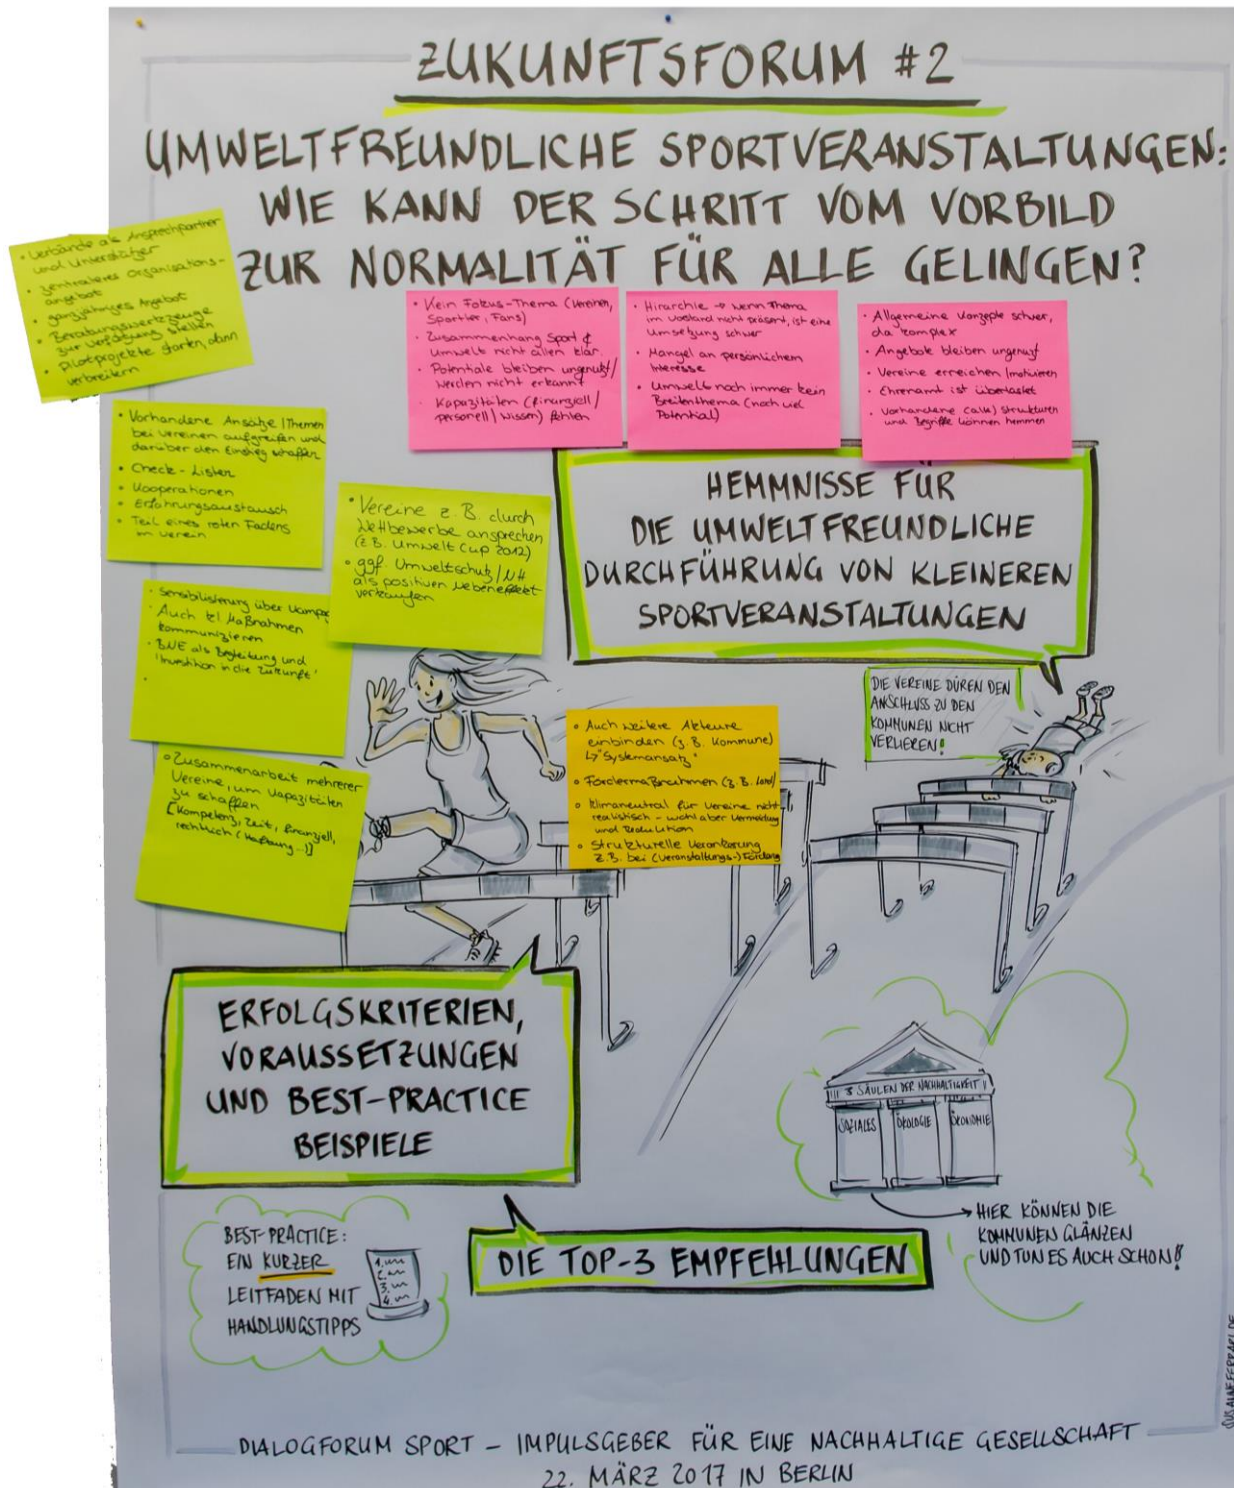 ZUKUNFTSFORUM #2
UMWELTFREUNDLICHE SPORTVERANSTALTUNGEN:
WIE KANN DER SCHRITT VOM VORBILD
ZUR NORMALITÄT FÜR ALLE GELINGEN?
• Verbände als Ansprechpartner
und Unterstützer
• zentraleres Organisations-
angebot
• ganzjähriges Angebot
• Beratungswerkzeuge
zur Verfügung stellen
• Pilotprojekte starten, dann
verbreitern
• Kein Fokus-Thema (Vereinen,
Sportler, Fans)
• Zusammenhang Sport &
Umwelt nicht allen klar
• Potentiale bleiben ungenutzt/
werden nicht erkannt
• Kapazitäten (finanziell/
personell/Wissen) fehlen
• Hirarchie → wenn Thema
im Vorstand nicht präsent, ist eine
Umsetzung schwer
• Mangel an persönlichem
Interesse
• Umwelt noch immer kein
Breitenthema (noch viel
Potential)
• Allgemeine Konzepte schwer,
da komplex
• Angebote bleiben ungenutzt
• Vereine erreichen/motivieren
• Ehrenamt ist überlastet
• Vorhandene (alte) Strukturen
und Begriffe können hemmen
• Vorhandene Ansätze/Themen
bei Vereinen aufgreifen und
darüber den Einstieg schaffen
• Check-Listen
• Kooperationen
• Erfahrungsaustausch
• Teil eines roten Fadens
im Verein
• Vereine z.B. durch
Wettbewerbe ansprechen
(z.B. Umwelt Cup 2012)
• ggf. Umweltschutz/NH
als positiven Nebeneffekt
verkaufen
HEMMNISSE FÜR
DIE UMWELTFREUNDLICHE
DURCHFÜHRUNG VON KLEINEREN
SPORTVERANSTALTUNGEN
• Sensibilisierung über
• Auch kl Maßnahmen
kommunizieren
• BNE als Begleitung und
'Investition in die Zukunft'
•
DIE VEREINE DÜREN DEN
ANSCHLUSS ZU DEN
KOMMUNEN NICHT
VERLIEREN!
• Auch weitere Akteure
einbinden (z.B. Kommune)
↳ "Systemansatz"
• Fördermaßnahmen (z.B. Land/
• Klimaneutral für Vereine nicht
realistisch - wohl aber Vermeidung
und Reduktion
• Strukturelle Verankerung
z.B. bei (Veranstaltungs-) Förderung
• Zusammenarbeit mehrerer
Vereine, um Kapazitäten
zu schaffen
[Kompetenz, Zeit, finanziell,
rechtlich (Haftung...)]
ERFOLGSKRITERIEN,
VORAUSSETZUNGEN
UND BEST-PRACTICE
BEISPIELE
3 SÄULEN DER NACHHALTIGKEIT
SOZIALES ÖKOLOGIE ÖKONOMIE
→ HIER KÖNNEN DIE
KOMMUNEN GLÄNZEN
UND TUN ES AUCH SCHON!
BEST-PRACTICE:
EIN KURZER
LEITFADEN MIT
HANDLUNGSTIPPS
1.
2.
3.
4.
DIE TOP-3 EMPFEHLUNGEN
SUSANNEFERRARI.DE
DIALOGFORUM SPORT – IMPULSGEBER FÜR EINE NACHHALTIGE GESELLSCHAFT
22. MÄRZ 2017 IN BERLIN